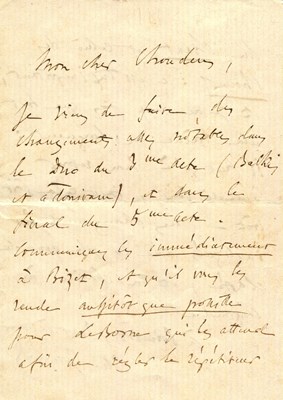 Mon cher Choudens,
Je viens de faire des
changements assez notables dans
le Duo du 3ème acte (Balkis
et Adoniram), et dans le
final du 5ème acte.
Communiquez les immédiatement
à Bizet, et qu'il vous les
rende aussitôt que possible
pour LeBorne qui les attend
afin de régler le répétiteur